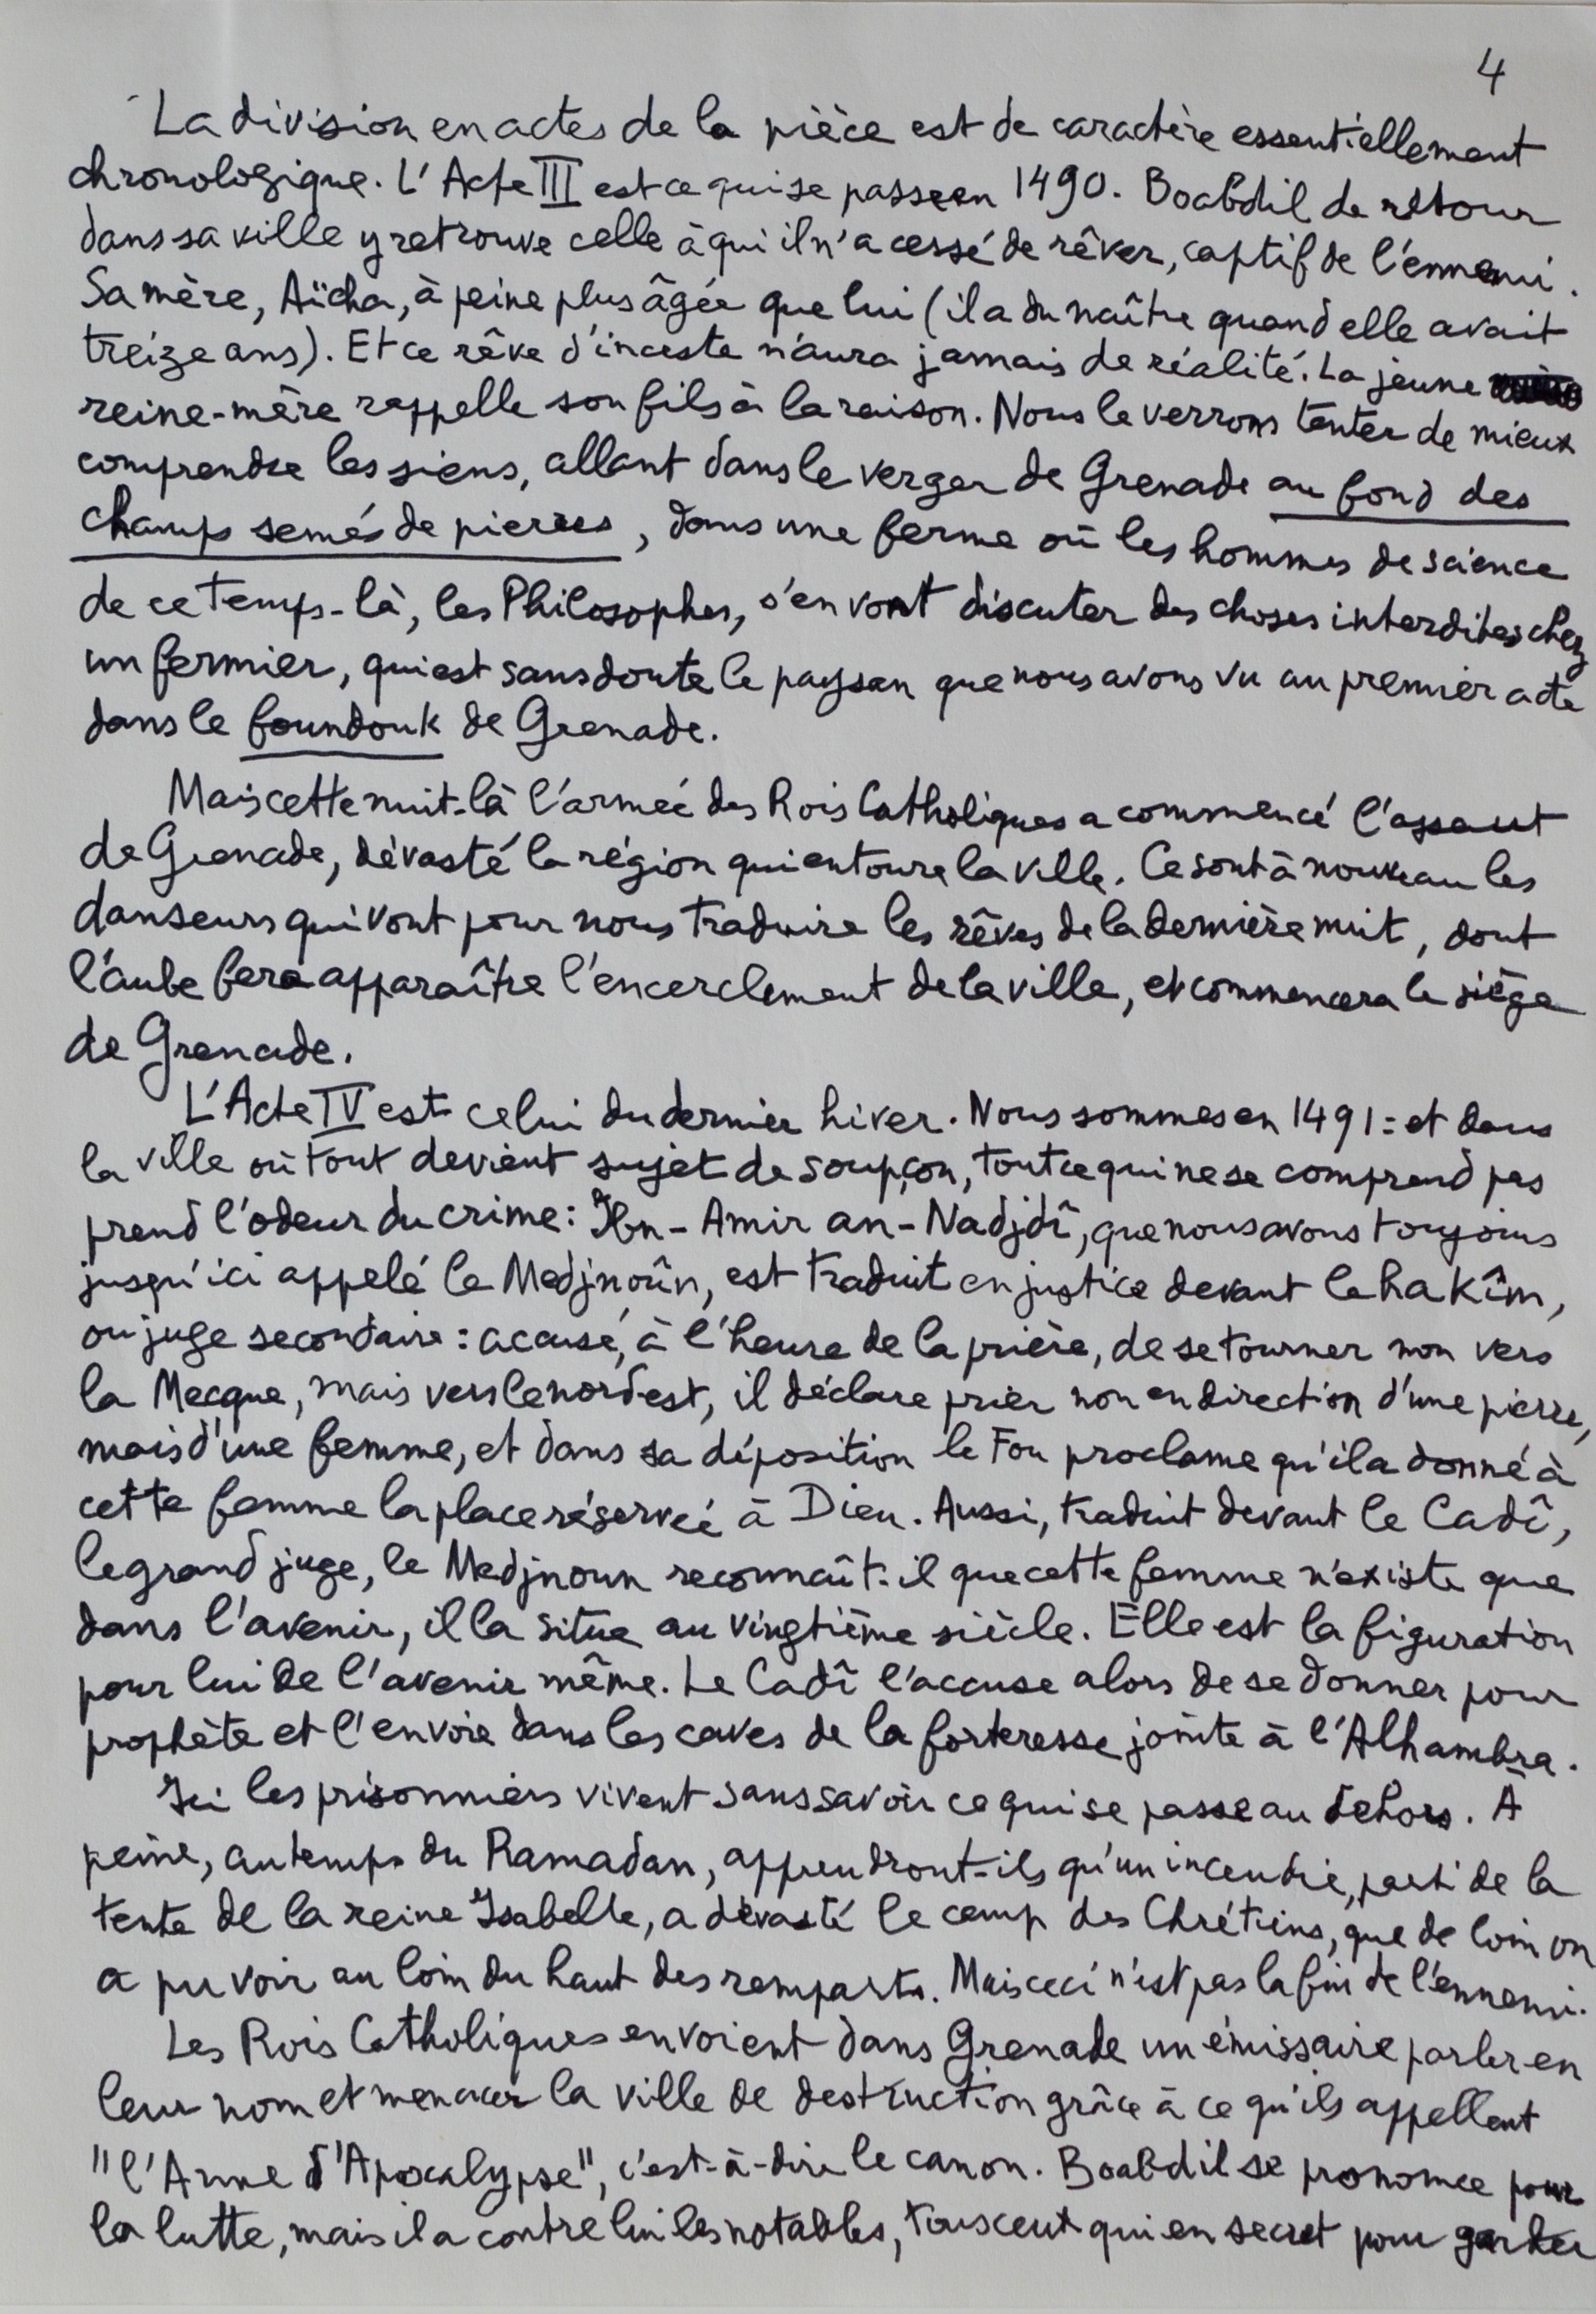 4
La division en actes de la pièce est de caractère essentiellement
chronologique. L'Acte III est ce qui se passe en 1490. Boabdil de retour
dans sa ville y retrouve celle à qui il n'a cessé de rêver, captif de l'ennemi.
Sa mère, Aïcha, à peine plus âgée que lui (il a du naître quand elle avait
treize ans). Et ce rêve d'inceste n'aura jamais de réalité. La jeune
reine-mère rappelle son fils à la raison. Nous le verrons tenter de mieux
comprendre les siens, allant dans le verger de Grenade au fond des
champs semés de pierres, dans une ferme où les hommes de science
de ce temps-là, les Philosophes, s'en vont discuter des choses interdites chez
un fermier, qui est sans doute le paysan que nous avons vu au premier acte
dans le foundouk de Grenade.
Mais cette nuit-là l'armée des Rois Catholiques a commencé l'assaut
de Grenade, dévasté la région qui entoure la ville. Ce sont à nouveau les
danseurs qui vont pour nous traduire les rêves de la dernière nuit, dont
l'aube fera apparaître l'encerclement de la ville, et commencera le siège
de Grenade.
L'Acte IV est celui du dernier hiver. Nous sommes en 1491 : et dans
la ville où tout devient sujet de soupçon, tout ce qui ne se comprend pas
prend l'odeur du crime : Ibn-Amir an-Nadjdî, que nous avons toujours
jusqu'ici appelé le Medjnoûn, est traduit en justice devant le hakîm,
ou juge secondaire : accusé, à l'heure de la prière, de se tourner non vers
la Mecque, mais vers le nord est, il déclare prier non en direction d'une pierre,
mais d'une femme, et dans sa déposition le Fou proclame qu'il a donné à
cette femme la place réservée à Dieu. Aussi, traduit devant le Cadî,
le grand juge, le Medjnoun reconnaît-il que cette femme n'existe que
dans l'avenir, il la situe au vingtième siècle. Elle est la figuration
pour lui de l'avenir même. Le Cadî l'accuse alors de se donner pour
prophète et l'envoie dans les caves de la forteresse jointe à l'Alhambra.
Ici les prisonniers vivent sans savoir ce qui se passe au dehors. À
peine, au temps du Ramadan, apprendront-ils qu'un incendie, parti de la
tente de la reine Isabelle, a dévasté le camp des Chrétiens, que de loin on
a pu voir au loin du haut des remparts. Mais ceci n'est pas la fin de l'ennemi.
Les Rois Catholiques envoient dans Grenade un émissaire parler en
leur nom et menacer la ville de destruction grâce à ce qu'ils appellent
"l'Arme d'Apocalypse", c'est-à-dire le canon. Boabdil se prononce pour
la lutte, mais il a contre lui les notables, tous ceux qui en secret pour garder